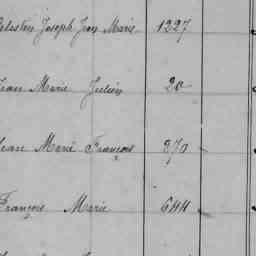 Celestin Joseph Jean Marie 1227
Jean Marie Julien 20
Jean Marie François 270
François Marie 644